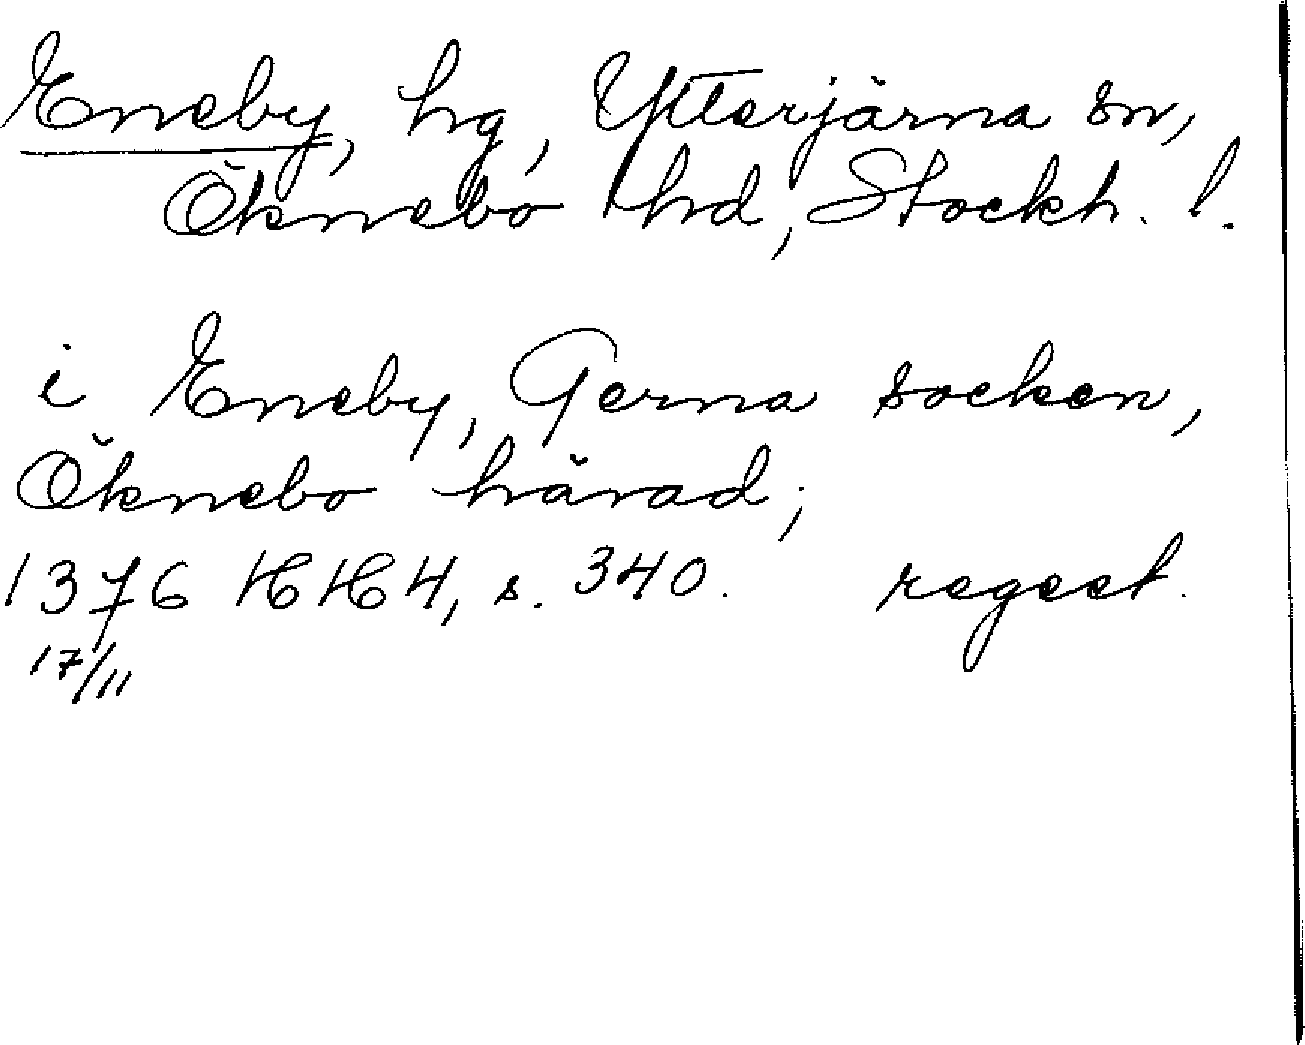 Eneby, hg, Ytterjärna sn,
Öknebo hd, Stockh. l.
i Eneby, Gerna socken,
Öknebo härad;
1376 HH 4, s. 340. regest.
17/11